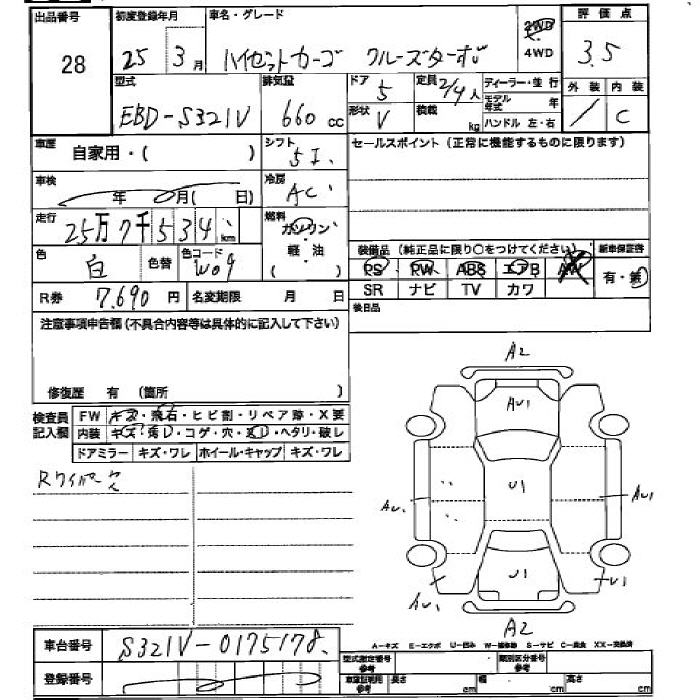 出品番号 初度登録年月 車名・グレード 2WD 4WD 評価点
28 25 3月 ハイゼットカーゴ クルーズターボ 3.5
型式 排気量 ドア 定員 ディーラー・並行 外装 内装
EBD-S321V 660cc 5 2/4人 モデル年式 年 / C
形状 V 積載 kg ハンドル 左・右
車歴 自家用・( ) シフト 5I. セールスポイント(正常に機能するものに限ります)
車検 年 月( 日) 冷房 AC
走行 25万7千534km 燃料 ガソリン
軽・油
( )
色 白 色替 色コード W09
装備品(純正品に限り○をつけてください) 新車保証書
PS PW ABS エアB AW 有・無
SR ナビ TV カワ
R券 7,690円 名変期限 月 日 後日品
注意事項申告欄(不具合内容等は具体的に記入して下さい)
修復歴 有 (箇所 )
検査員記入欄 FW キズ・飛石・ヒビ割・リペア跡・X要
内装 キズ・汚レ・コゲ・穴・スレ・ヘタリ・破レ
ドアミラー キズ・ワレ ホイール・キャップ キズ・ワレ
Rワイパー
A2
AU1
U1
AU1
AU1
U1
AU1
U1
A2
車台番号 S321V-0175178
登録番号
A-キズ E-エクボ U-凹み W-補修跡 S-サビ C-腐食 XX-交換済
型式指定番号 参考 類別区分番号 参考
車庫証明用 参考 長さ cm 幅 cm 高さ cm